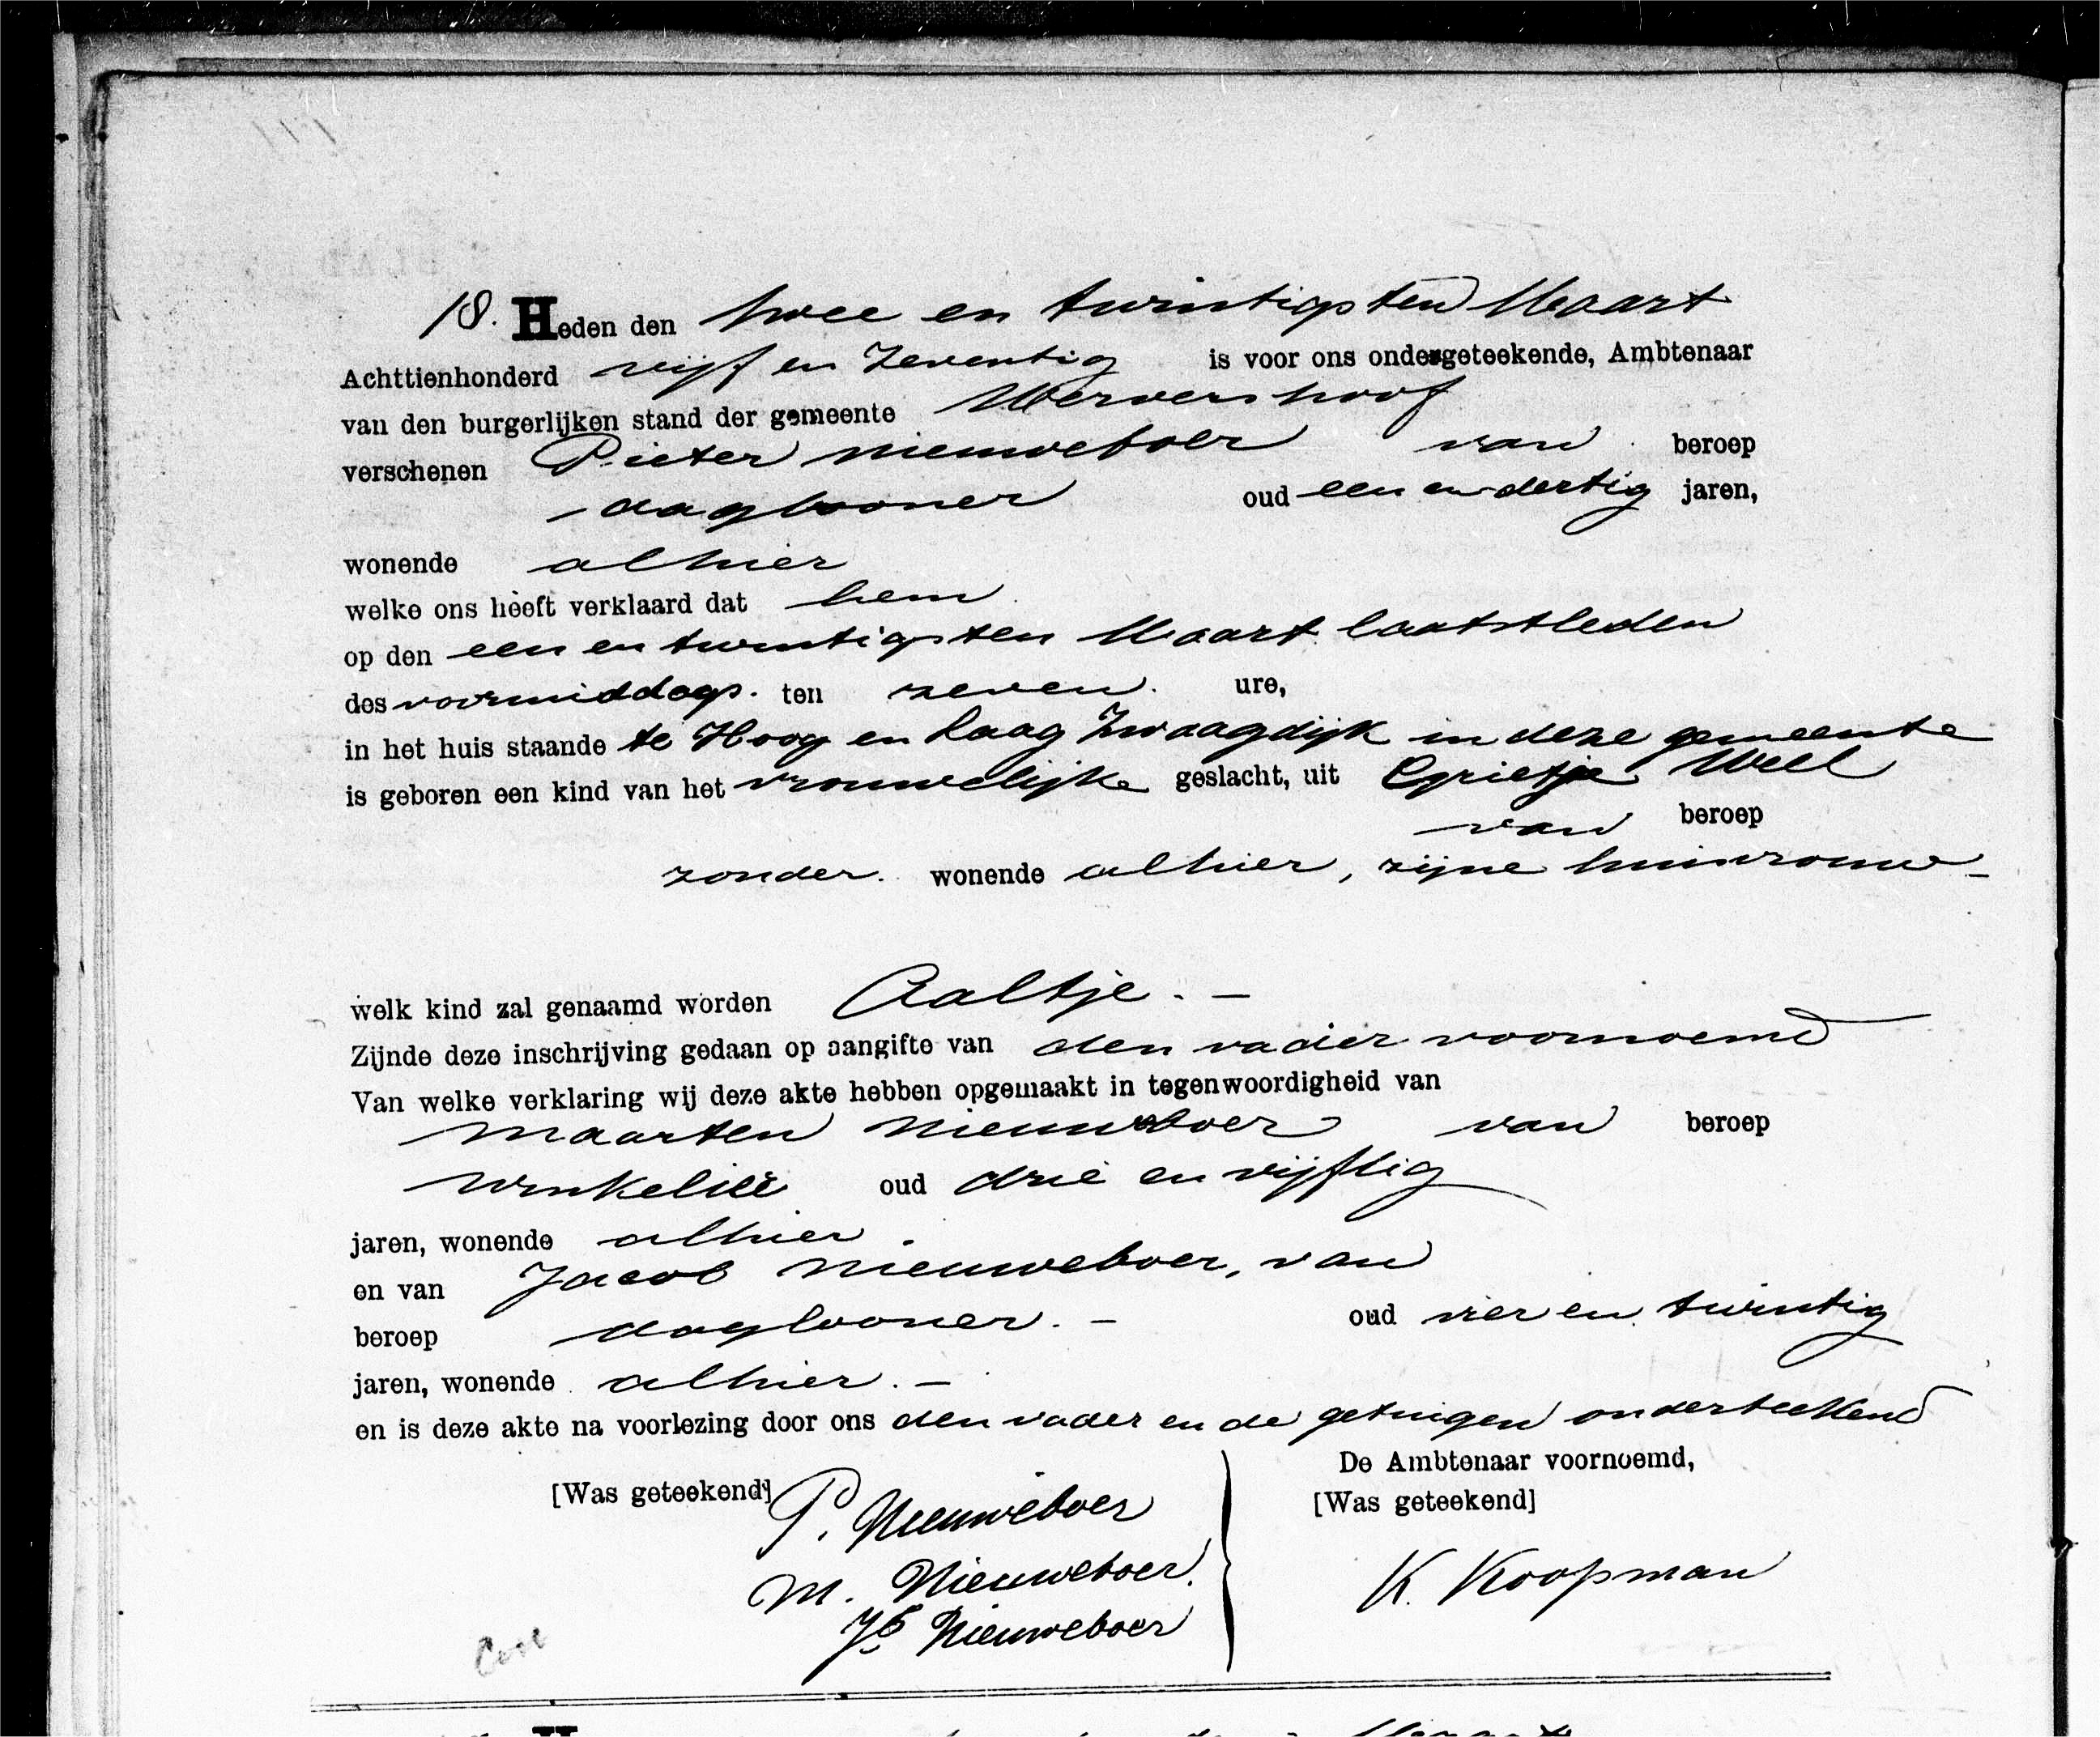 18. Heden den twee en twintigsten Maart
Achttienhonderd vijf en zeventig is voor ons ondergeteekende, Ambtenaar
van den burgerlijken stand der gemeente Wervershoof
verschenen Pieter Nieuweboer van beroep
daglooner oud een en dertig jaren,
wonende alhier
welke ons heeft verklaard dat hem
op den een en twintigsten Maart laatstleden
des voormiddags. ten zeven. ure,
in het huis staande te Hoog en Laag Zwaagdijk in deze gemeente
is geboren een kind van het vrouwelijke geslacht, uit Grietje Wel
van beroep
zonder. wonende alhier, zijne huisvrouw -
welk kind zal genaamd worden Aaltje. -
Zijnde deze inschrijving gedaan op aangifte van den vader voornoemd
Van welke verklaring wij deze akte hebben opgemaakt in tegenwoordigheid van
Maarten Nieuweboer van beroep
winkelier oud drie en vijftig
jaren, wonende alhier
en van Jacob Nieuweboer, van
beroep daglooner. - oud vier en twintig
jaren, wonende alhier. -
en is deze akte na voorlezing door ons den vader en de getuigen onderteekend
De Ambtenaar voornoemd,
[Was geteekend] P. Nieuweboer [Was geteekend]
M. Nieuweboer. K. Koopman
Jb Nieuweboer